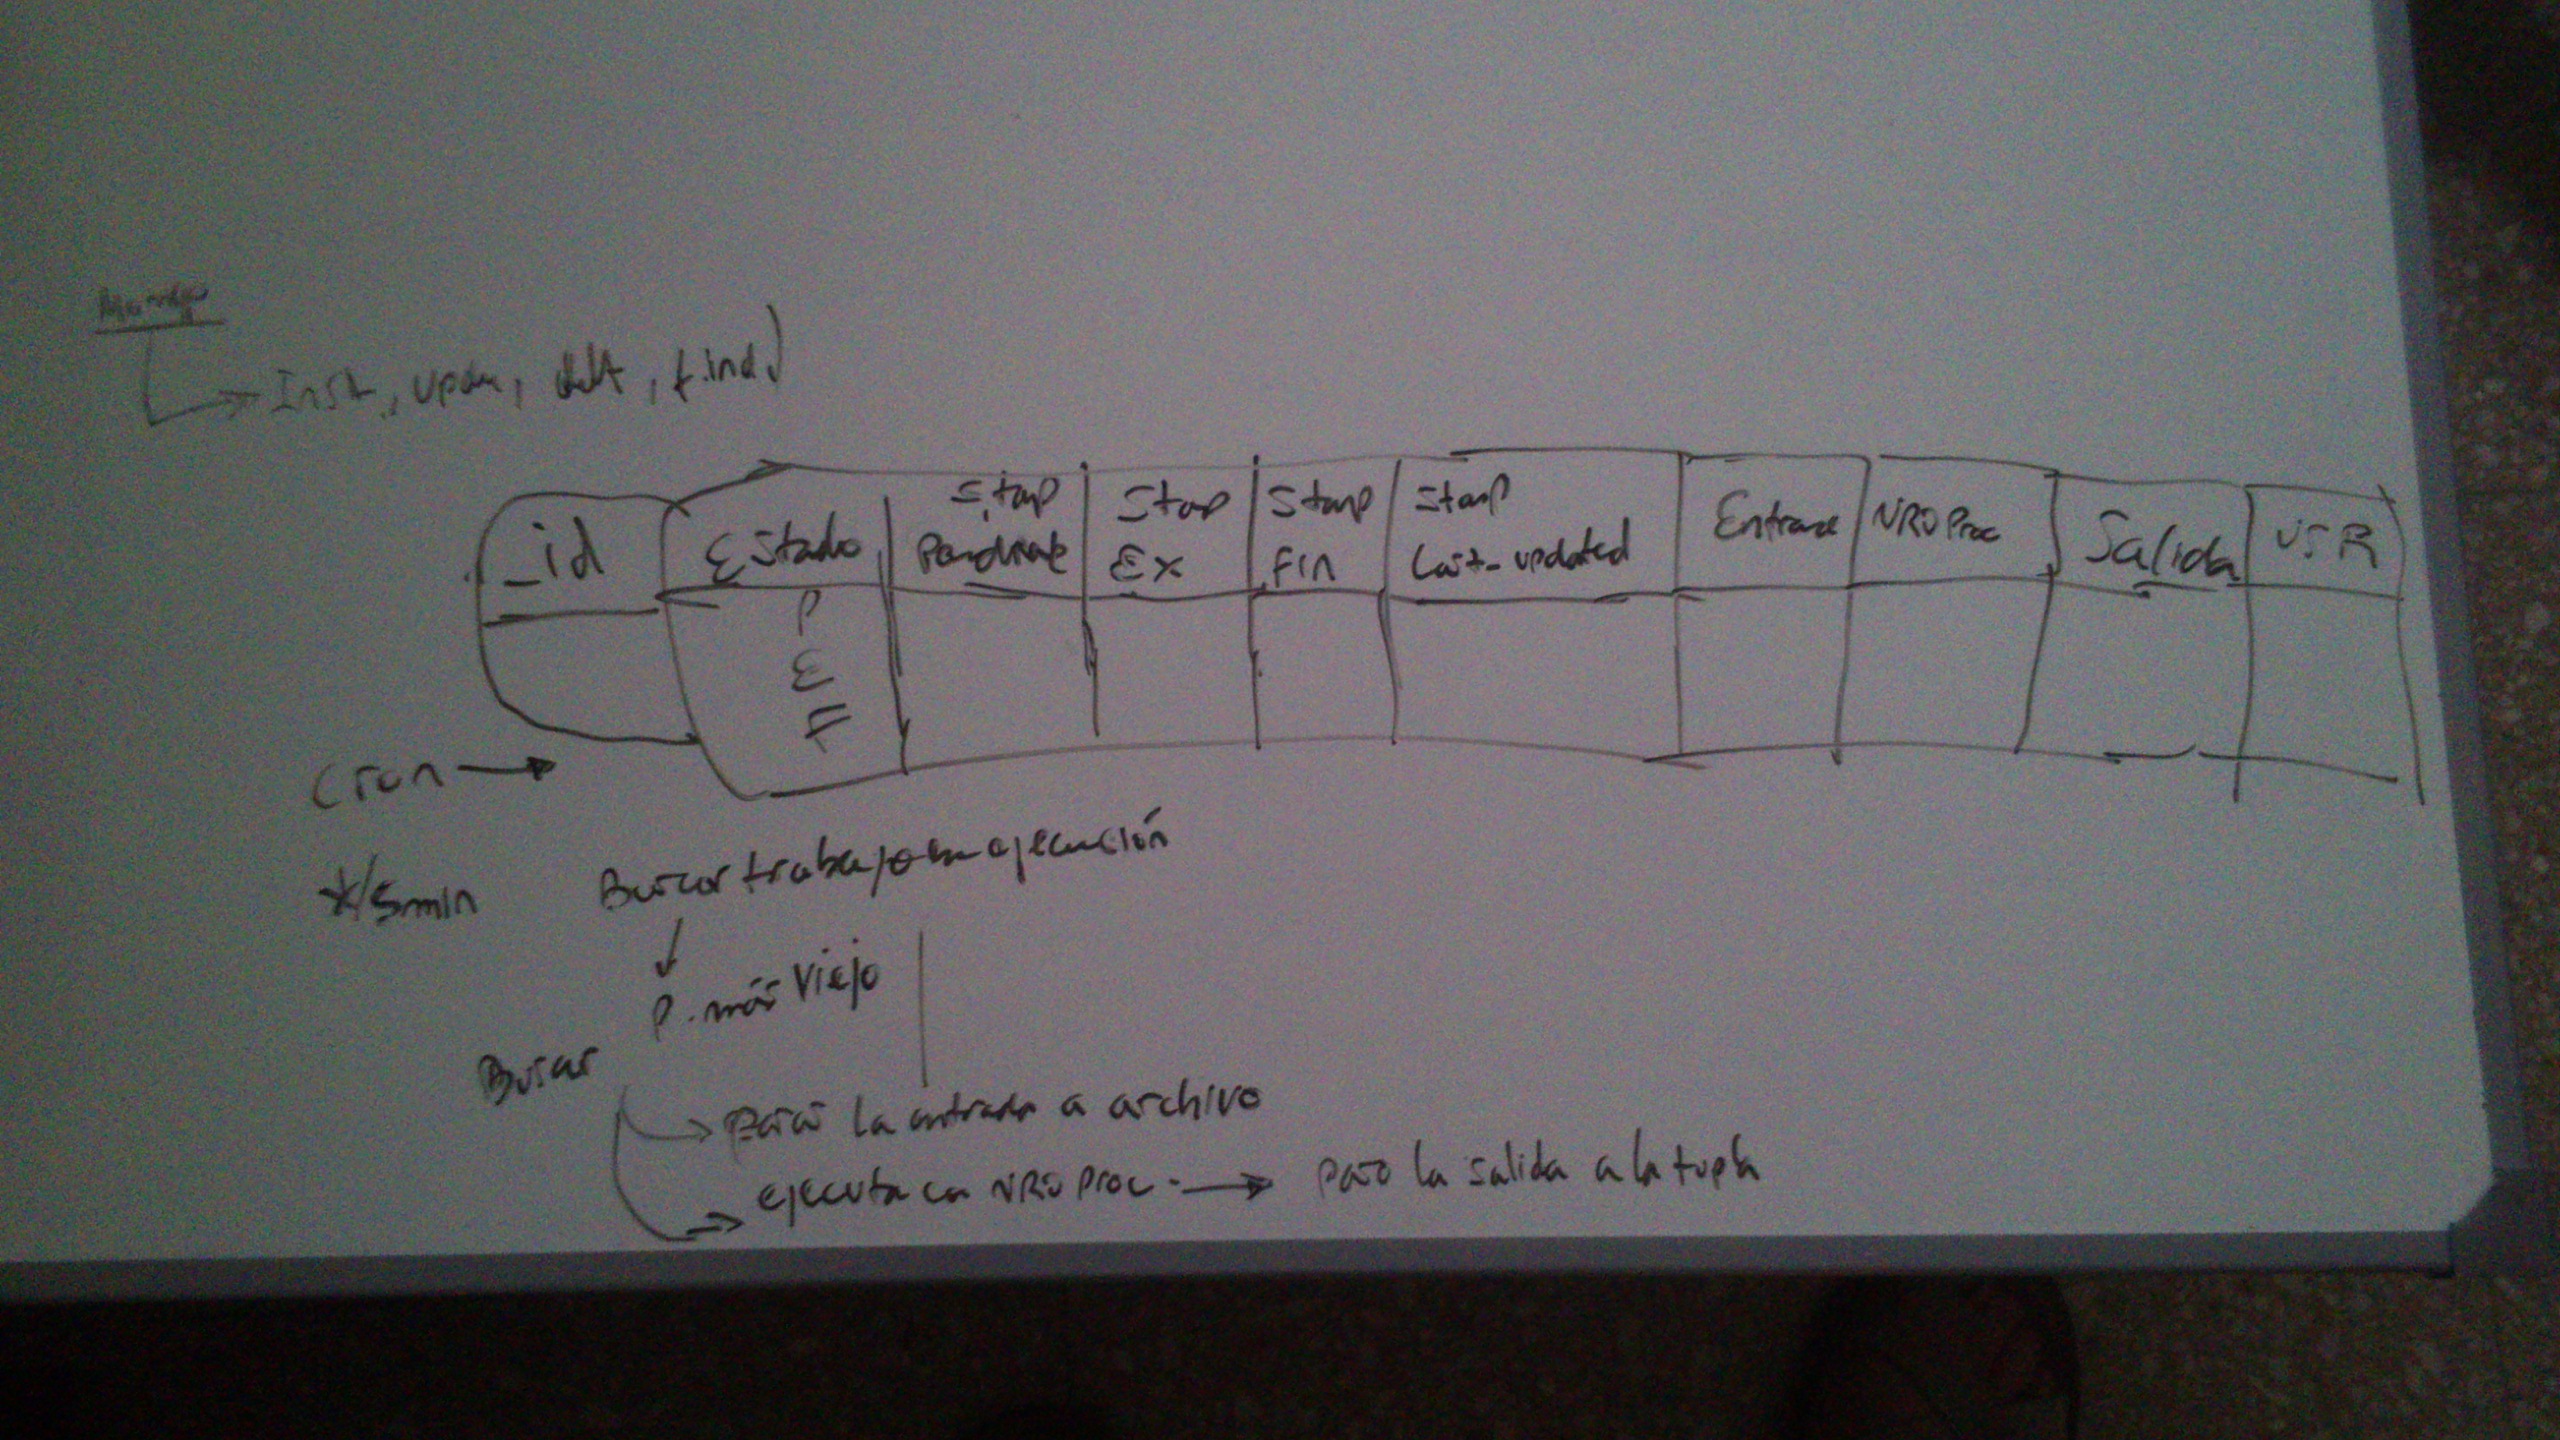 Mongo
Inst., updte, delt, find
_id
Estado
Stamp Pendiente
Stamp Ex
Stamp Fin
Stamp last-updated
Entrada
NRO Proc
Salida
USR
P
E
F
Cron
*/5min
Buscar trabajo en ejecución
P. más viejo
Buscar
pasar la entrada a archivo
ejecuta con NRO Proc. paso la salida a la tupla